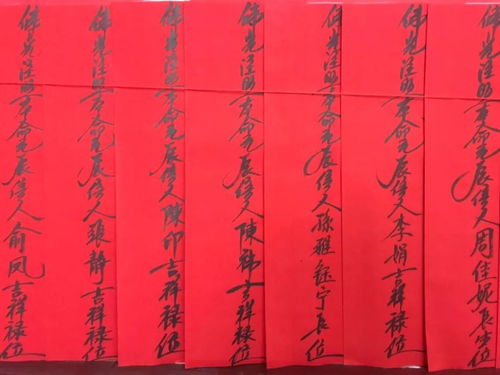 佛光注照本命元辰信人周佳妮長生位
佛光注照本命元辰信人李娟吉祥禄位
佛光注照本命元辰信人孫雅長位
佛光注照本命元辰信人陳吉祥禄位
佛光注照本命元辰信人陳印吉祥禄位
佛光注照本命元辰信人張靜吉祥禄位
佛光注照本命元辰信人俞凤吉祥禄位